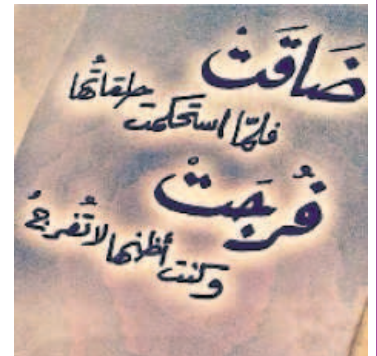 ضَاقَتْ
فلمّا استحكمت حلقاتُها
فُرِجَتْ
وكنت أظنها لا تُفرجُ